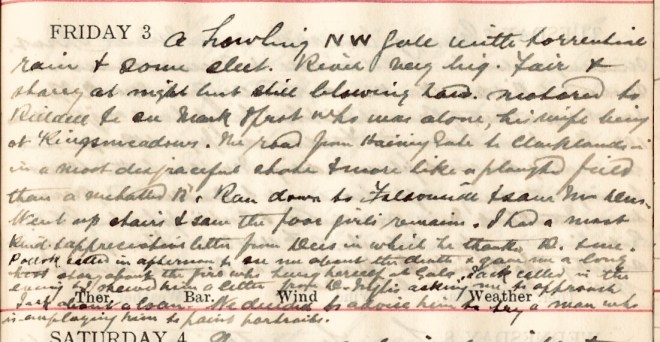 FRIDAY 3 A howling NW Gale with torrential
rain & some sleet. River very big. Fair &
starry at night but still blowing hard. Motored to
to see Mark Sprot who was alone, his wife being
at Kingsmeadows. The road from Haining Gate to Clarklands is
in a most disgraceful state & more like a ploughed field
than a metalled Rd. Ran down to & saw Mrs
Went up stairs & saw the poor girls remains. I had a most
kind & appreciative letter from in which he thanks D. & me.
called in afternoon to see me about the death & gave me a long
story about the girl who hung herself at Gala. Jack called in the
evening & I shewed him a letter from D. Inglis asking me to approach
Ther. Bar. Wind Weather
Jack about a loan. We decided to advise him to try a man who
is employing him to paint portraits.
SATURDAY 4